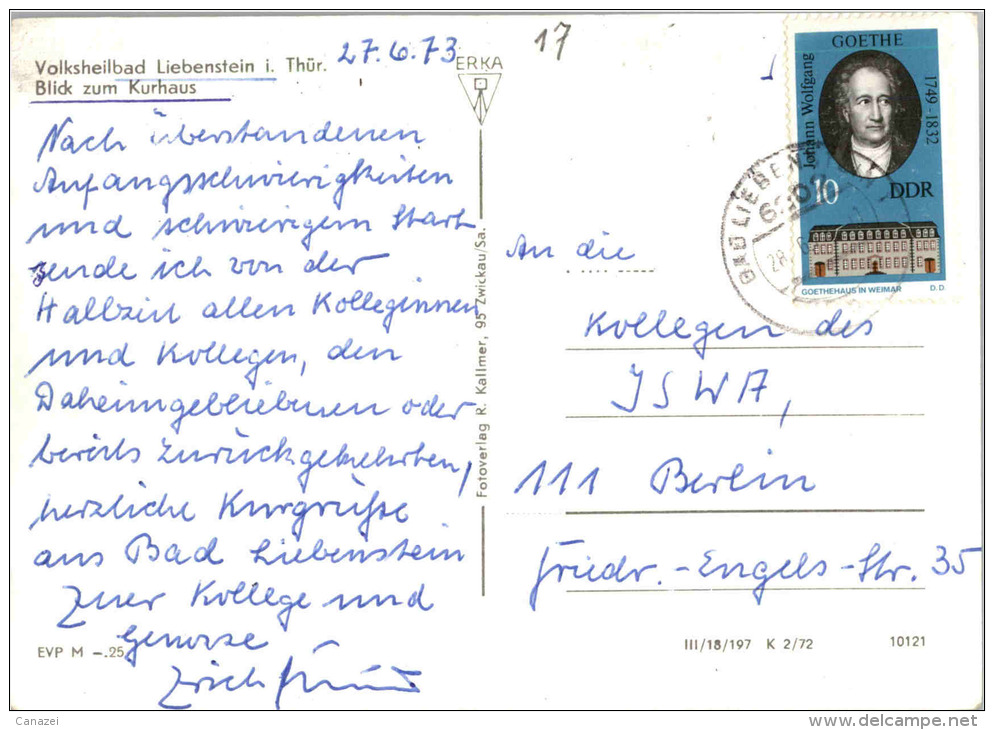 Volksheilbad Liebenstein i. Thür.
Blick zum Kurhaus
27.6.73
17
ERKA
Nach überstandenen
Anfangsschwierigkeiten
und schwierigem Start
sende ich von der
Halbzeit allen Kolleginnen
und Kollegen, den
Daheimgebliebenen oder
bereits zurückgekehrten,
herzliche Kurgrüße
aus Bad Liebenstein
Euer Kollege und
Genosse
Erich
EVP M –.25
Fotoverlag R. Kallmer, 95 Zwickau/Sa.
GOETHE
Johann Wolfgang
1749-1832
10
DDR
GOETHEHAUS IN WEIMAR
D.D.
BAD LIEBEN
6204
28.6
An die
Kollegen des
ISWA,
111 Berlin
Friedr.-Engels-Str. 35
III/18/197 K 2/72
10121
Canazei
www.delcampe.net